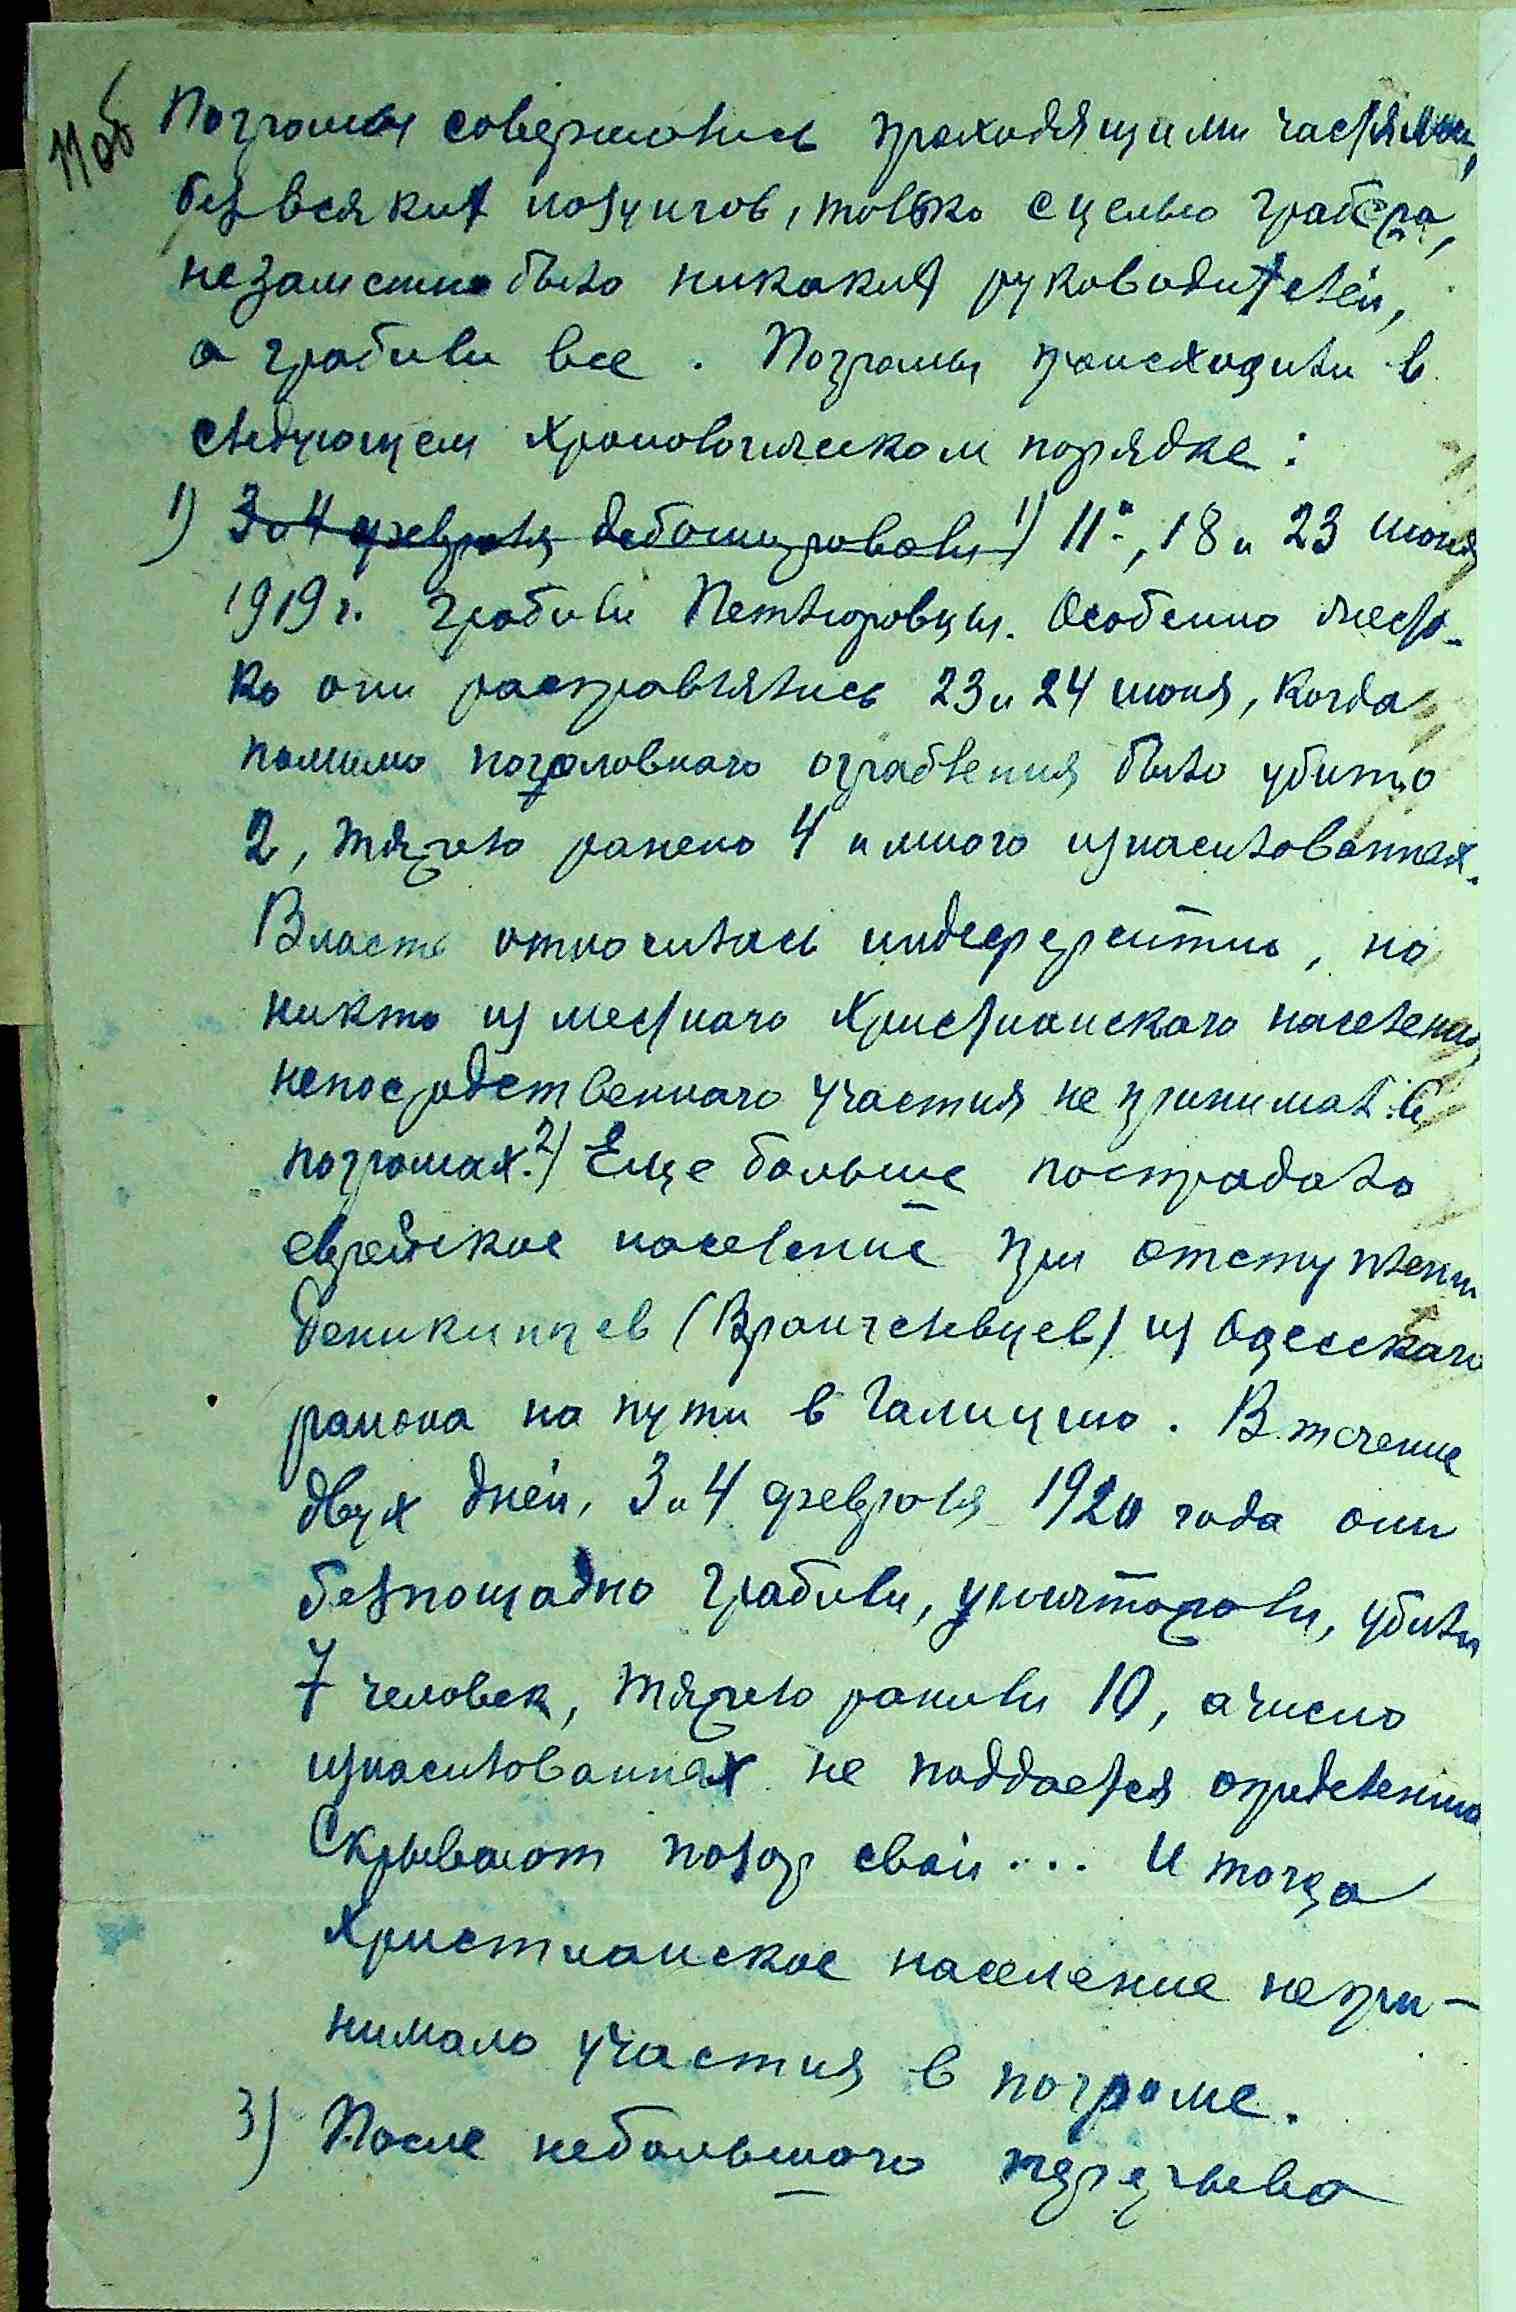 11об
Погромы совершались проходящими частями,
без всяких лозунгов, только с целью грабежа,
незаметно было никаких руководителей,
а грабили все. Погромы происходили в
следующем хронологическом порядке:
1) 3 и 4 февраля дебошировали 1) 11-, 18 и 23 июня
1919 г. грабили Петлюровцы. Особенно жесто-
ко они расправлялись 23 и 24 июня, когда
помимо поголовнаго ограбления было убито
2, тяжело ранено 4 и много изнасилованных.
Власть относилась индеферентно, но
никто из местнаго христианскаго населения
непосредственнаго участия не принимал в
погромах. 2) Еще больше пострадало
еврейское население при отступлении
деникинцев (Врангелевцев) из Одесскаго
района на пути в Галицию. В течение
двух дней, 3 и 4 февраля 1920 года они
безпощадно грабили, уничтожали, убили
7 человек, тяжело ранили 10, а число
изнасилованных не поддается определению
Скрывают позор свой.... И тогда
христианское население непри-
нимало участия в погроме.
3) После небольшого перерыва